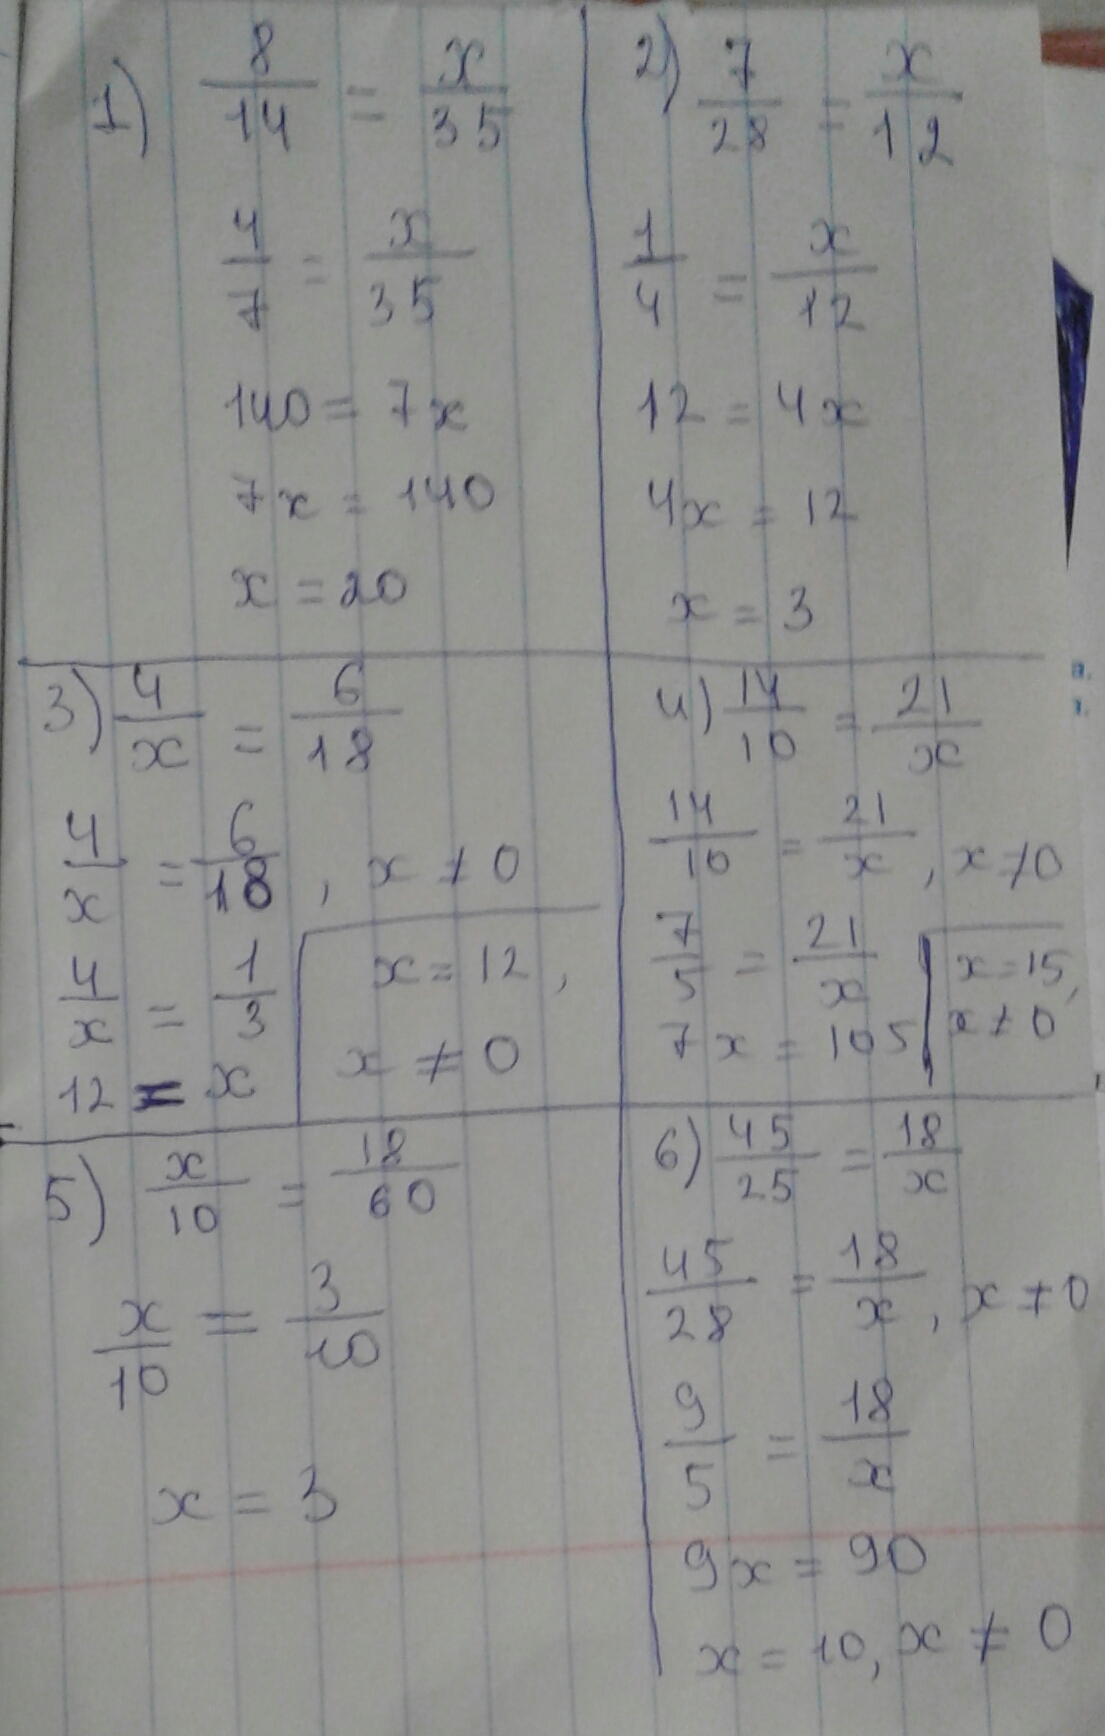 1) 8/14 = x/35
4/7 = x/35
140 = 7x
7x = 140
x = 20
2) 7/28 = x/12
1/4 = x/12
12 = 4x
4x = 12
x = 3
3) 4/x = 6/18
4/x = 6/18, x ≠ 0
4/x = 1/3
12 = x
x = 12,
x ≠ 0
4) 14/10 = 21/x
14/10 = 21/x, x ≠ 0
7/5 = 21/x
7x = 105
x = 15,
x ≠ 0
5) x/10 = 18/60
x/10 = 3/10
x = 3
6) 45/25 = 18/x
45/28 = 18/x, x ≠ 0
9/5 = 18/x
9x = 90
x = 10, x ≠ 0